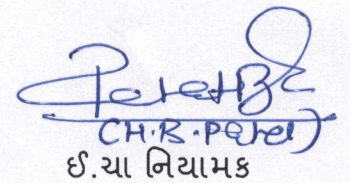 CH.B.Patel)
ઈ.ચા નિયામક